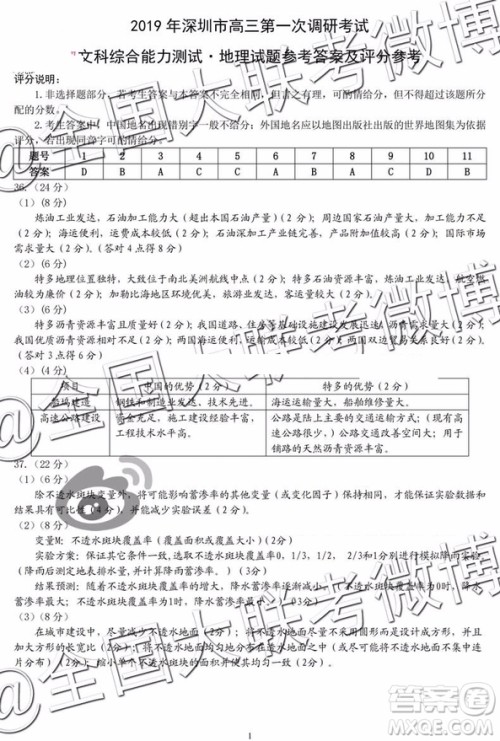 2019 年深圳市高三第一次调研考试
文科综合能力测试·地理试题参考答案及评分参考
评分说明:
1.非选择题部分,若考生答案与本答案不完全相同,但言之有理,可酌情给分,但不得超过该题所分
配的分数。
2.考生答案中,中国地名出现错别字一般不给分;外国地名应以地图出版社出版的世界地图集为依据
评分,若出现同音字可酌情给分。
题号 1 2 3 4 5 6 7 8 9 10 11
答案 D B A C C D B A C B A
36.(24 分)
(1)(8 分)
炼油工业发达,石油加工能力大(超出本国石油产量)(2 分);周边国家石油产量大,石油供应充足(2
分);海运便利,运费低(2 分);石油深加工产业发达,产品附加值较高(2 分);国际市场
需求量大(2 分)。(答对 4 点得 8 分)
(2)(6 分)
特多地理位置独特,大致位于南北美洲航线中点(2 分);特多石油资源丰富,炼油工业发达,航空燃
油较为廉价(2 分);加勒比海地区环境优美,旅游资源丰富,航空客流量大(2 分)。
(3)(6 分)
特多沥青资源丰富且质量好(2 分);我国道路、住房等基础设施建设规模大,沥青需求量大(2 分);
我国优质沥青资源相对不足(2 分);海运便利,运费较低(2 分);两国双边贸易关系友好(2 分)。
(4)(4 分)
项目 中国的优势(2 分) 特多的优势(2 分)
船坞建造 钢铁和制造业发达,技术先进。 海运运输量大,船舶维修量大。
高速公路建设 资金充足,施工建设经验丰富,
工程技术水平高。 公路是陆上主要的交通运输方式;
(现有高速公路不能满足需要;)用于
铺路的天然沥青资源丰富。
37.(22 分)
(1)(6 分)
除不透水斑块变量外,将可能影响蓄渗率的其他因子(变量)保持一致(2 分),保证实验结果的科学性
和准确性(4 分),并能减少实验误差(2 分)。
(2)(8 分)
变量M:不透水斑块覆盖率(覆盖面积或覆盖大小)(2 分)
实验方案:保证其它条件一致,选取不透水斑块覆盖率为 0,1/3,1/2, 2/3和1分别模拟降雨实验,
(降雨后测定地表径流量和降水蓄渗率)(2 分)
结果预测:随着不透水斑块覆盖率的增大,降水蓄渗率减小(2 分);不透水斑块覆盖率为0时,降水蓄
渗率最大;不透水斑块覆盖率为1时,降水蓄渗率最小(2 分)。
(3)(8 分)
在城市建设中,尽量减少不透水地面(2 分);必须的不透水地面要尽量采用交错分布的形式,并且
加大坡形的比例(2 分);宽高比要大(2 分);尽量不要采用大面积的不透水地面(不透水地面不要集中连
片分布)(2 分);缩小单个不透水斑块的面积并使其均匀分布(2 分)。
1
@全国大联考微博
@全国大联考微博
答案圈